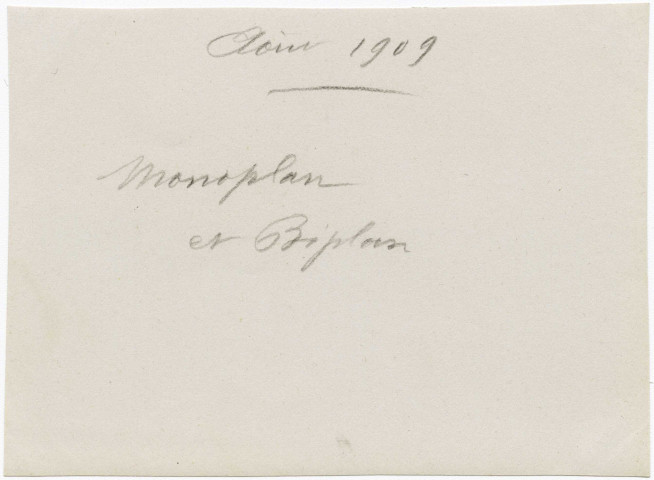 Août 1909
Monoplan
et Biplan